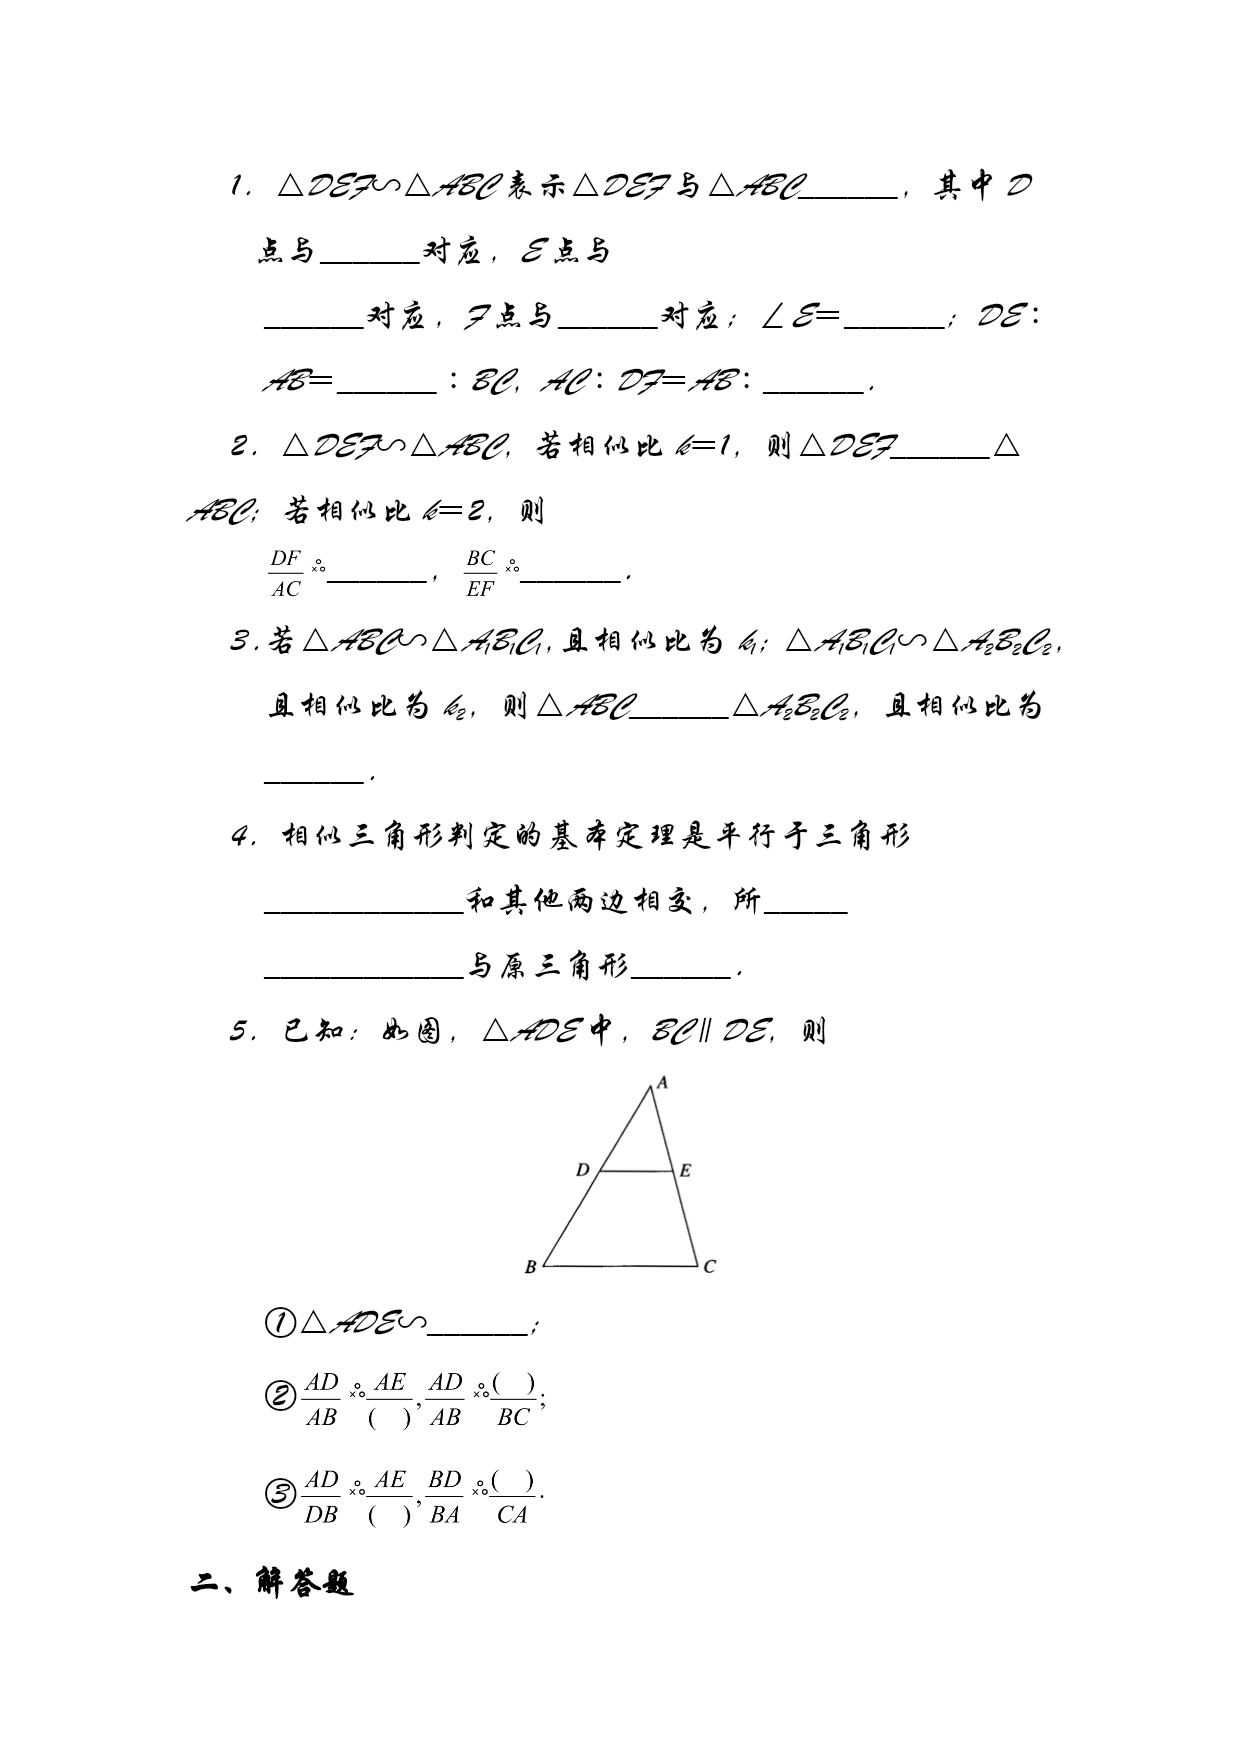 1. △DEF∽△ABC表示△DEF与△ABC______，其中D
点与______对应，E点与
______对应，F点与______对应；∠E=______；DE：
AB=______：BC，AC：DF=AB：______.
2. △DEF∽△ABC，若相似比k=1，则△DEF______△
ABC；若相似比k=2，则
DF/AC ______，BC/EF ______.
3.若△ABC∽△A₁B₁C₁,且相似比为k₁；△A₁B₁C₁∽△A₂B₂C₂，
且相似比为k₂，则△ABC______△A₂B₂C₂，且相似比为
______.
4. 相似三角形判定的基本定理是平行于三角形
____________和其他两边相交，所_____
____________与原三角形______.
5. 已知：如图，△ADE中，BC∥DE，则
A
D E
B C
①△ADE∽______;
②AD/AB AE/( ), AD/AB ( )/BC;
③AD/DB AE/( ), BD/BA ( )/CA.
二、解答题